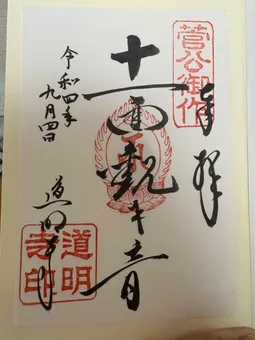 奉拝
菅公御作
十一面観世音
道明寺
令和四年
九月四日
道明
寺印